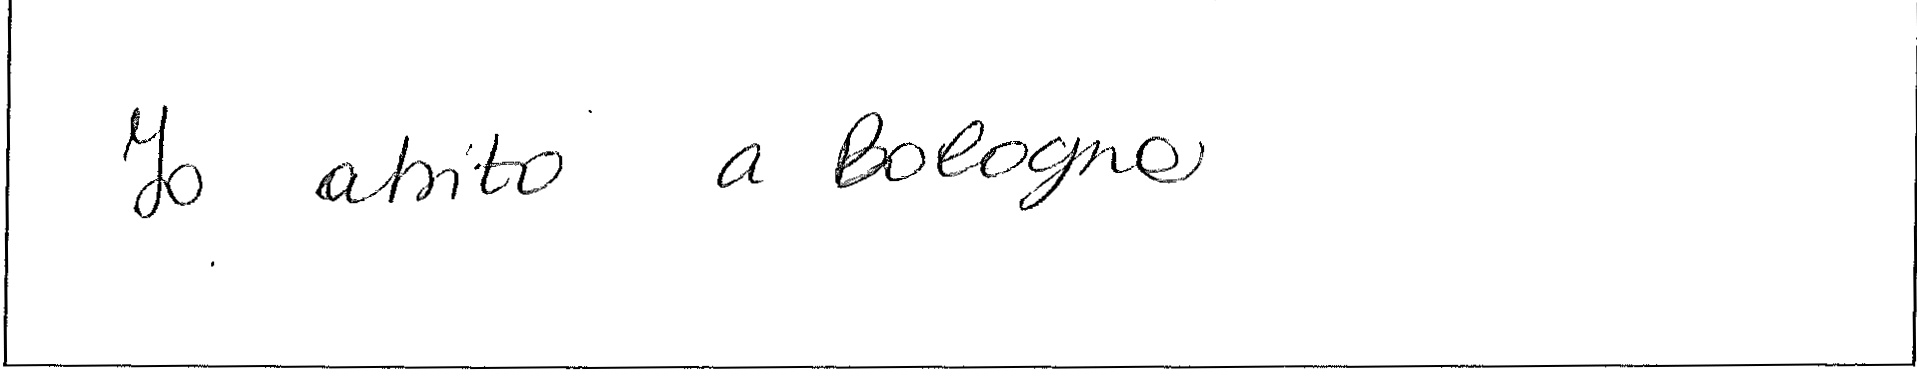 Io abito a Bologna